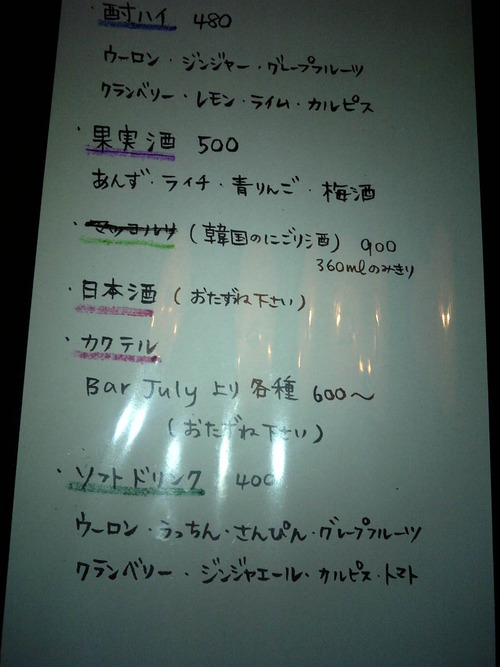 ・酎ハイ 480
ウーロン・ジンジャー・グレープフルーツ
クランベリー・レモン・ライム・カルピス
・果実酒 500
あんず・ライチ・青りんご・梅酒
・マッコルリ (韓国のにごり酒) 900
360mlのみきり
・日本酒 (おたずね下さい)
・カクテル
Bar July より各種 600〜
(おたずね下さい)
・ソフトドリンク 400
ウーロン・うっちん・さんぴん・グレープフルーツ
クランベリー・ジンジャエール・カルピス・トマト